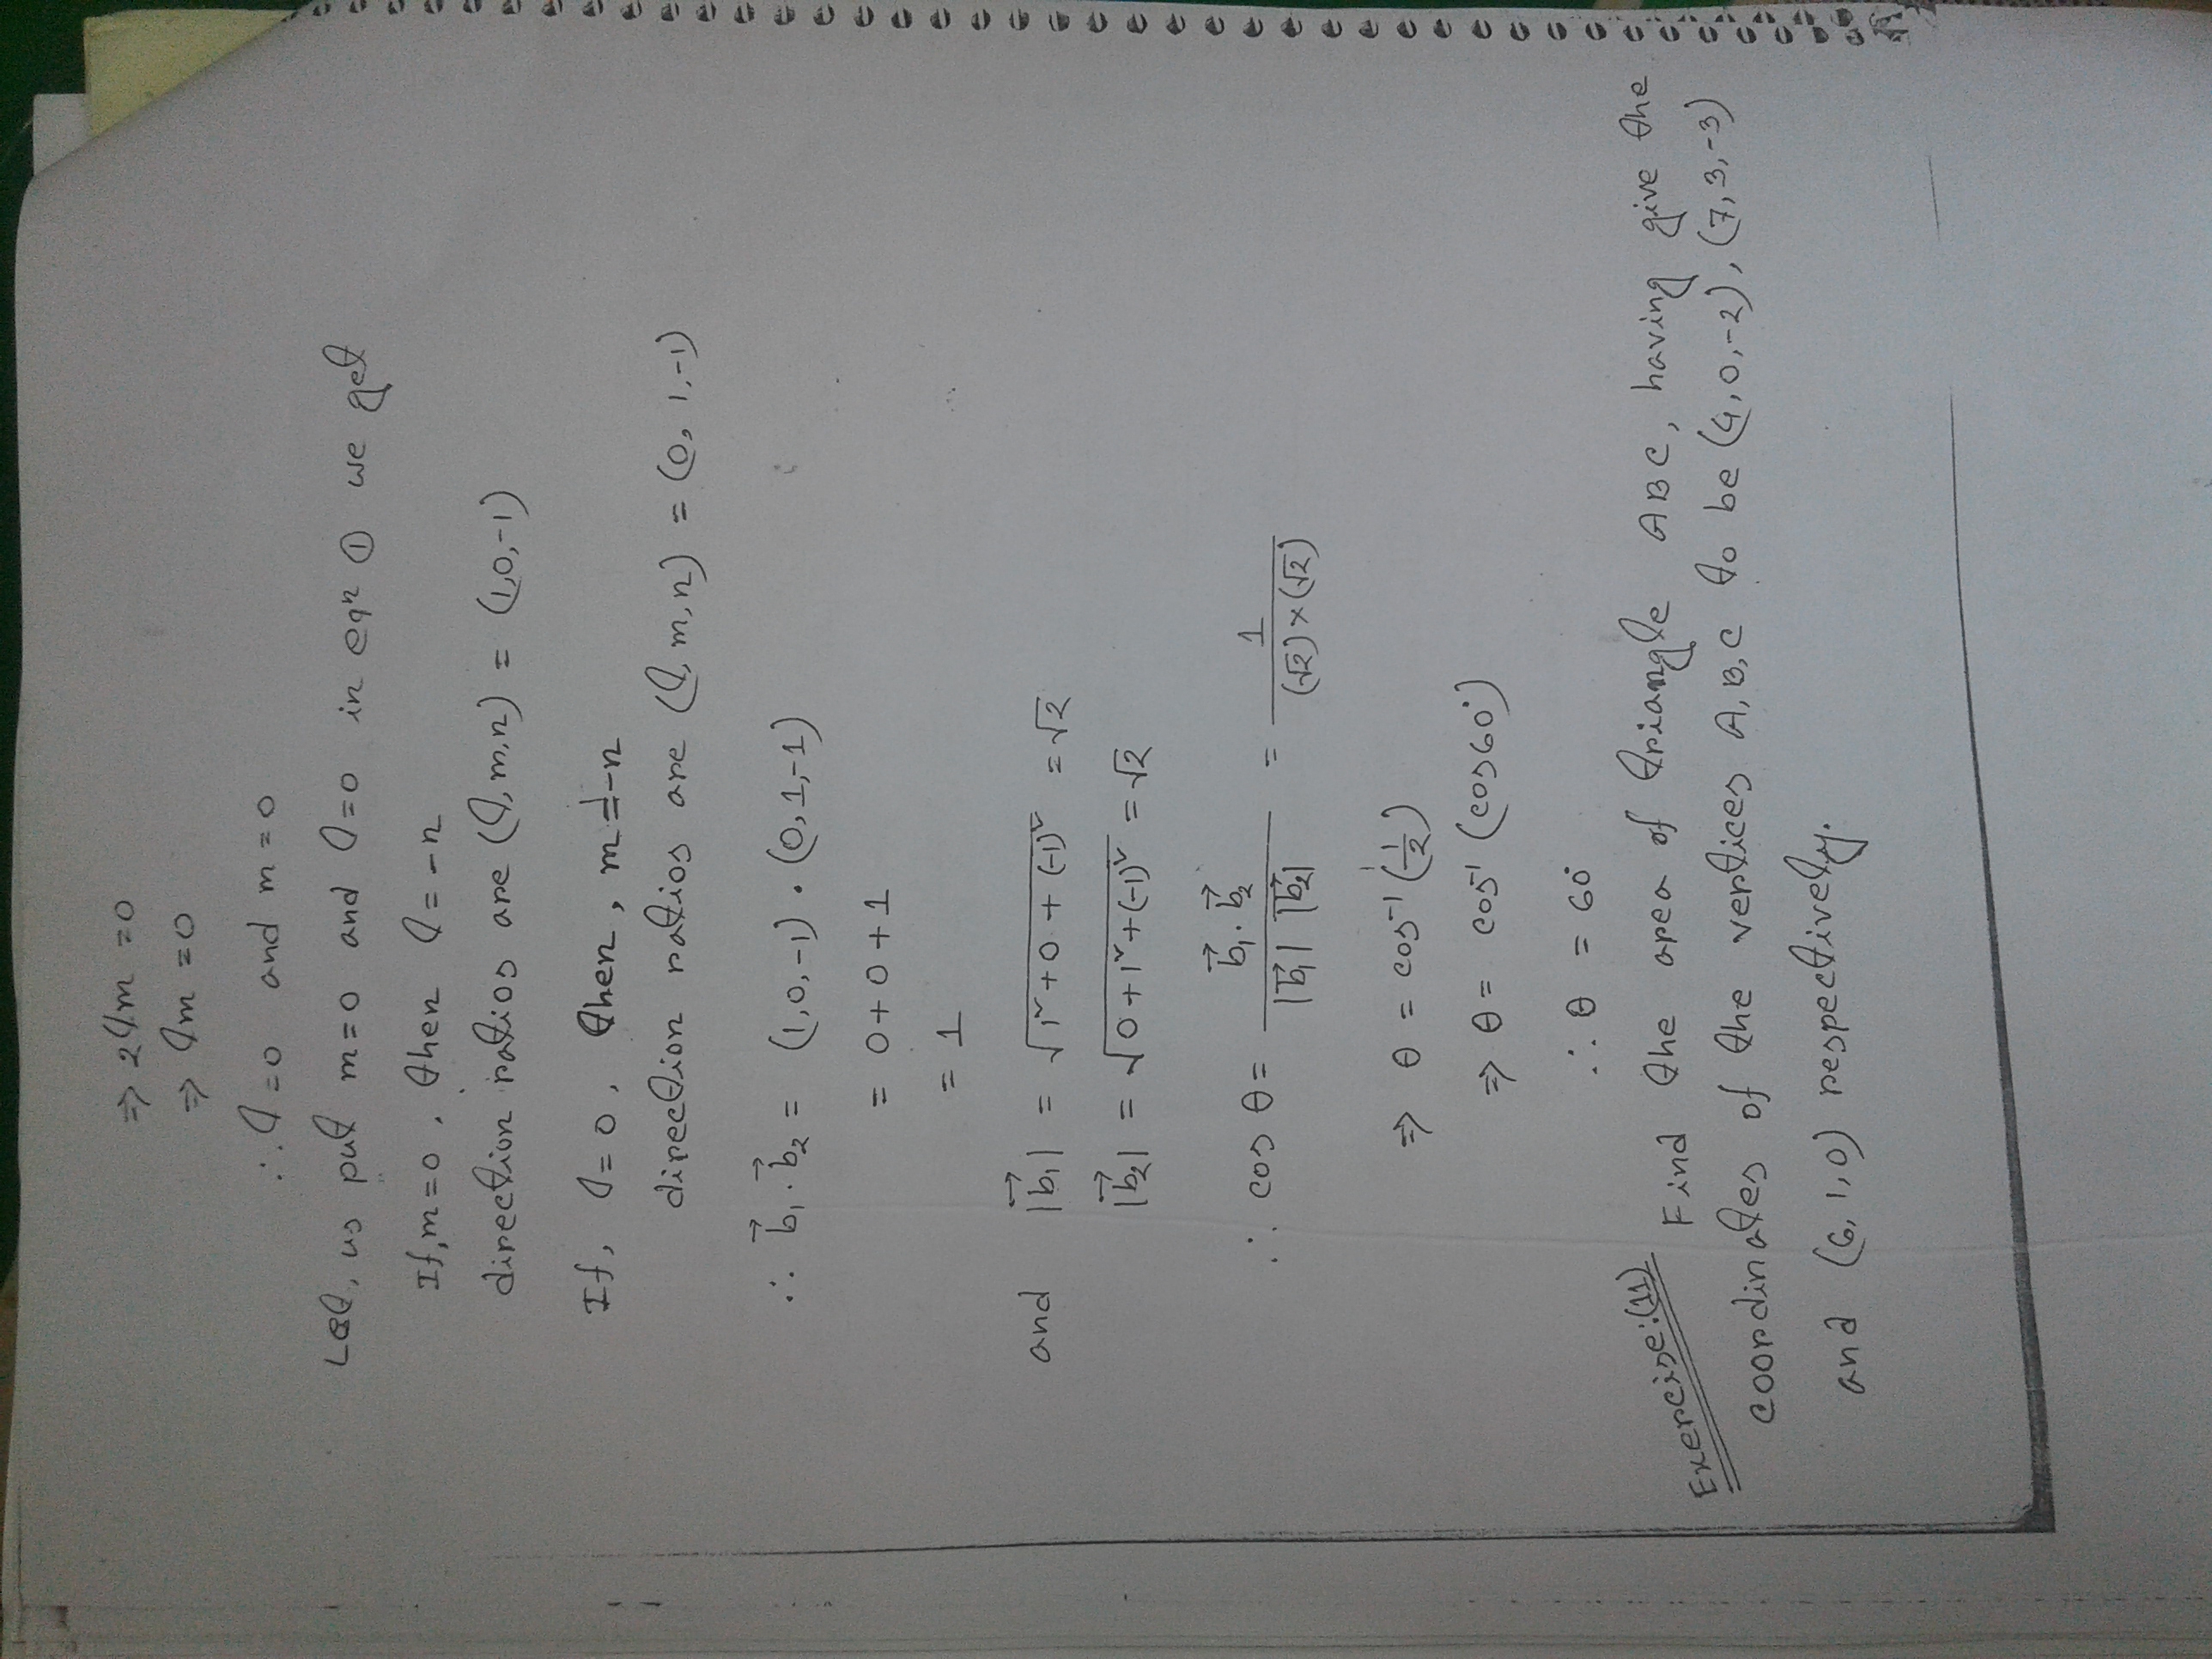 ⇒ 2lm = 0
⇒ lm = 0
∴ l = 0 and m = 0
Let, us put m = 0 and l = 0 in eqn ① we get
If, m = 0, then l = -n
direction ratios are (l, m, n) = (1, 0, -1)
If, l = 0, then, m = -n
direction ratios are (l, m, n) = (0, 1, -1)
∴ b⃗₁ . b⃗₂ = (1, 0, -1) . (0, 1, -1)
= 0 + 0 + 1
= 1
and |b⃗₁| = √(1² + 0 + (-1)²) = √2
|b⃗₂| = √(0 + 1² + (-1)²) = √2
∴ cos θ = (b⃗₁ . b⃗₂) / (|b⃗₁| |b⃗₂|) = 1 / ((√2) × (√2))
⇒ θ = cos⁻¹ (1/2)
⇒ θ = cos⁻¹ (cos 60°)
∴ θ = 60°
Exercise: (11) Find the area of triangle ABC, having give the
coordinates of the vertices A, B, C to be (4, 0, -2), (7, 3, -3)
and (6, 1, 0) respectively.